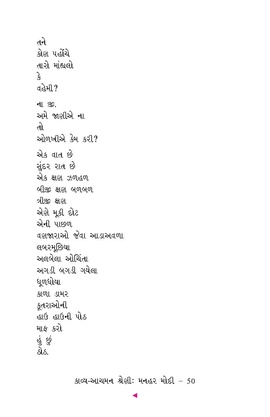 તને
કોણ પહોંચે
તારો માંહ્યલો
કે
વહેમી?
ના જી.
અમે જાણીએ ના
તો
ઓળખીએ કેમ કરી?
એક વાત છે
સુંદર રાત છે
એક ક્ષણ ઝળહળ
બીજી ક્ષણ બળબળ
ત્રીજી ક્ષણ
એણે મૂકી દોટ
એની પાછળ
વણજારાઓ જેવા આડાઅવળા
લબરમૂછિયા
અલબેલા ઓચિંતા
અગડી બગડી ગયેલા
ધૂળધોયા
કાળા ડામર
કૂતરાઓની
હાઉ હાઉની પોઠ
માફ કરો
હું છું
ઠોઠ.
કાવ્ય-આચમન શ્રેણીઃ મનહર મોદી – 50